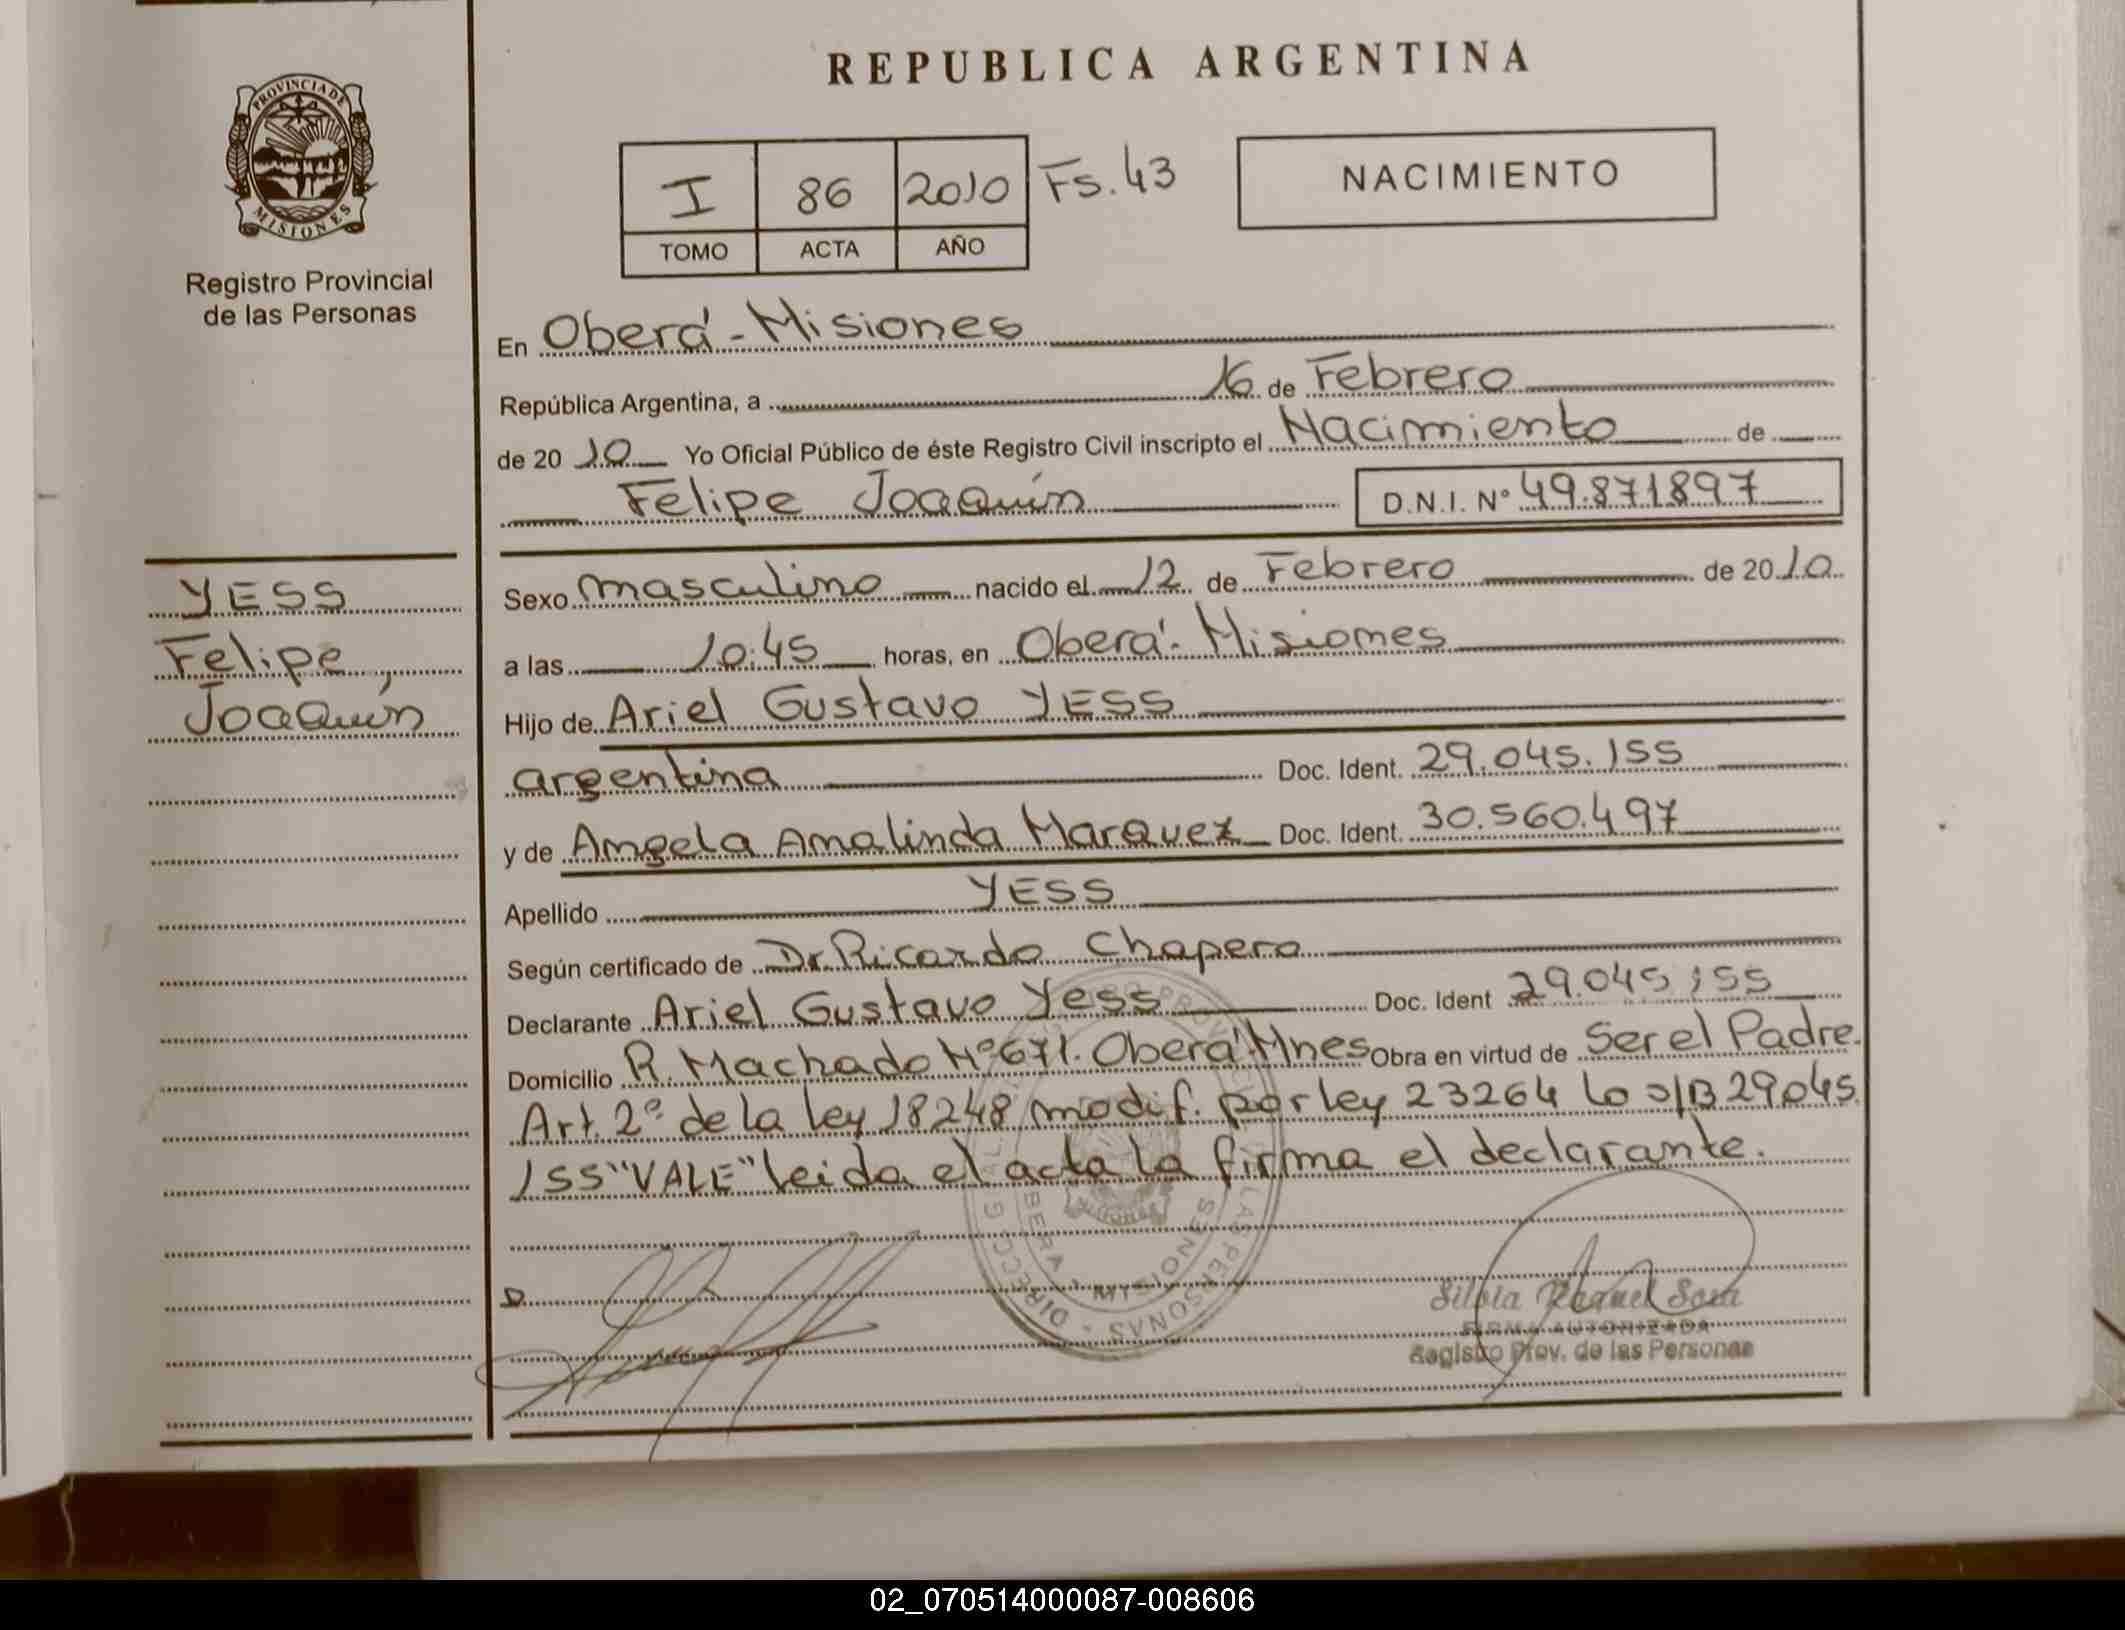 REPUBLICA ARGENTINA
PROVINCIA DE MISIONES
Registro Provincial
de las Personas
I 86 2010 Fs. 43
TOMO ACTA AÑO
NACIMIENTO
En Oberá - Misiones
República Argentina, a 16 de Febrero
de 2010 Yo Oficial Público de éste Registro Civil inscripto el Nacimiento de
Felipe Joaquín D.N.I. Nº 49.871897
YESS
Felipe
Joaquín
Sexo masculino nacido el 12 de Febrero de 2010
a las 10:45 horas, en Oberá - Misiones
Hijo de Ariel Gustavo YESS
argentina Doc. Ident. 29.045.155
y de Angela Amalinda Marquez Doc. Ident. 30.560.497
Apellido YESS
Según certificado de Dr. Ricardo Chapero
Declarante Ariel Gustavo Yess Doc. Ident 29.045 155
Domicilio R. Machado Nº 671. Oberá Mnes Obra en virtud de Ser el Padre.
Art. 2º de la ley 18248 modif. por ley 23264 Lo s/B 29.045
155 "VALE" leida el acta la firma el declarante.
Silvia Raquel
FIRMA AUTORIZADA
Registro Prov. de las Personas
02_070514000087-008606